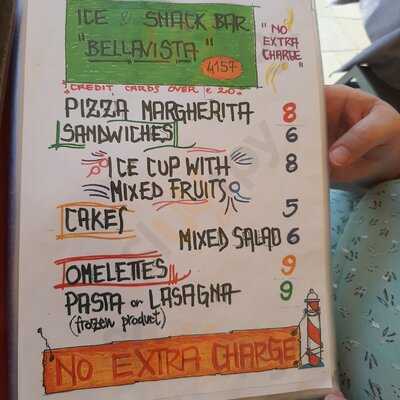 ICE & SNACK BAR
"BELLAVISTA"
4157
"NO
EXTRA
CHARGE"
CREDIT CARDS OVER € 20
PIZZA MARGHERITA 8
SANDWICHES 6
ICE CUP WITH 8
MIXED FRUITS
CAKES 5
MIXED SALAD 6
OMELETTES 9
PASTA or LASAGNA 9
(frozen product)
NO EXTRA CHARGE